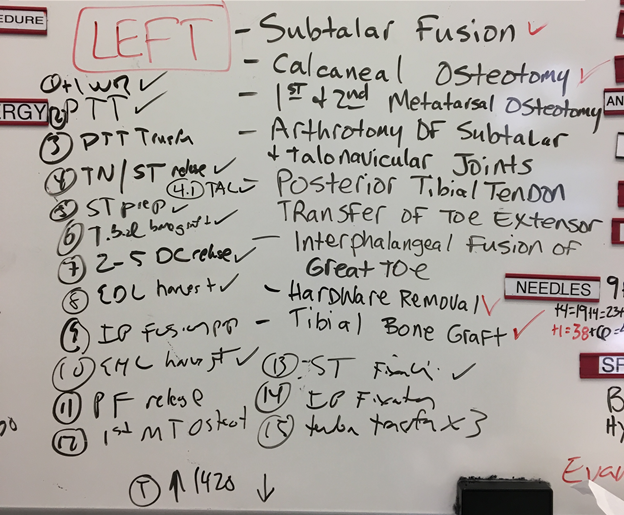 EDURE
LEFT
- Subtalar Fusion ✓
- Calcaneal Osteotomy ✓
- 1st + 2nd Metatarsal Osteotomy
- Arthrotomy OF Subtalar
+ talonavicular Joints
- Posterior Tibial Tendon
Transfer of Toe Extensor
- Interphalangeal Fusion of
Great toe
- Hardware Removal ✓
- Tibial Bone Graft ✓
ERGY
② PTT ✓
③ PTT Transfer
④ TN/ST release ✓
4.1 TAL ✓
⑤ ST prep ✓
⑥ Tibial bone graft ✓
⑦ 2-5 DC release ✓
⑧ EDL harvest ✓
⑨ IP Fusion prep
⑩ EHL harvest ✓
⑪ PF release
⑫ 1st MT Osteot
⑬ ST Fixation ✓
⑭ IP Fixation
⑮ tendon transfer x 3
Ⓣ ↑ 1420 ↓
AN
NEEDLES 9
+4=19+4=23+
+1=38+
SP
B
Hy
Evan